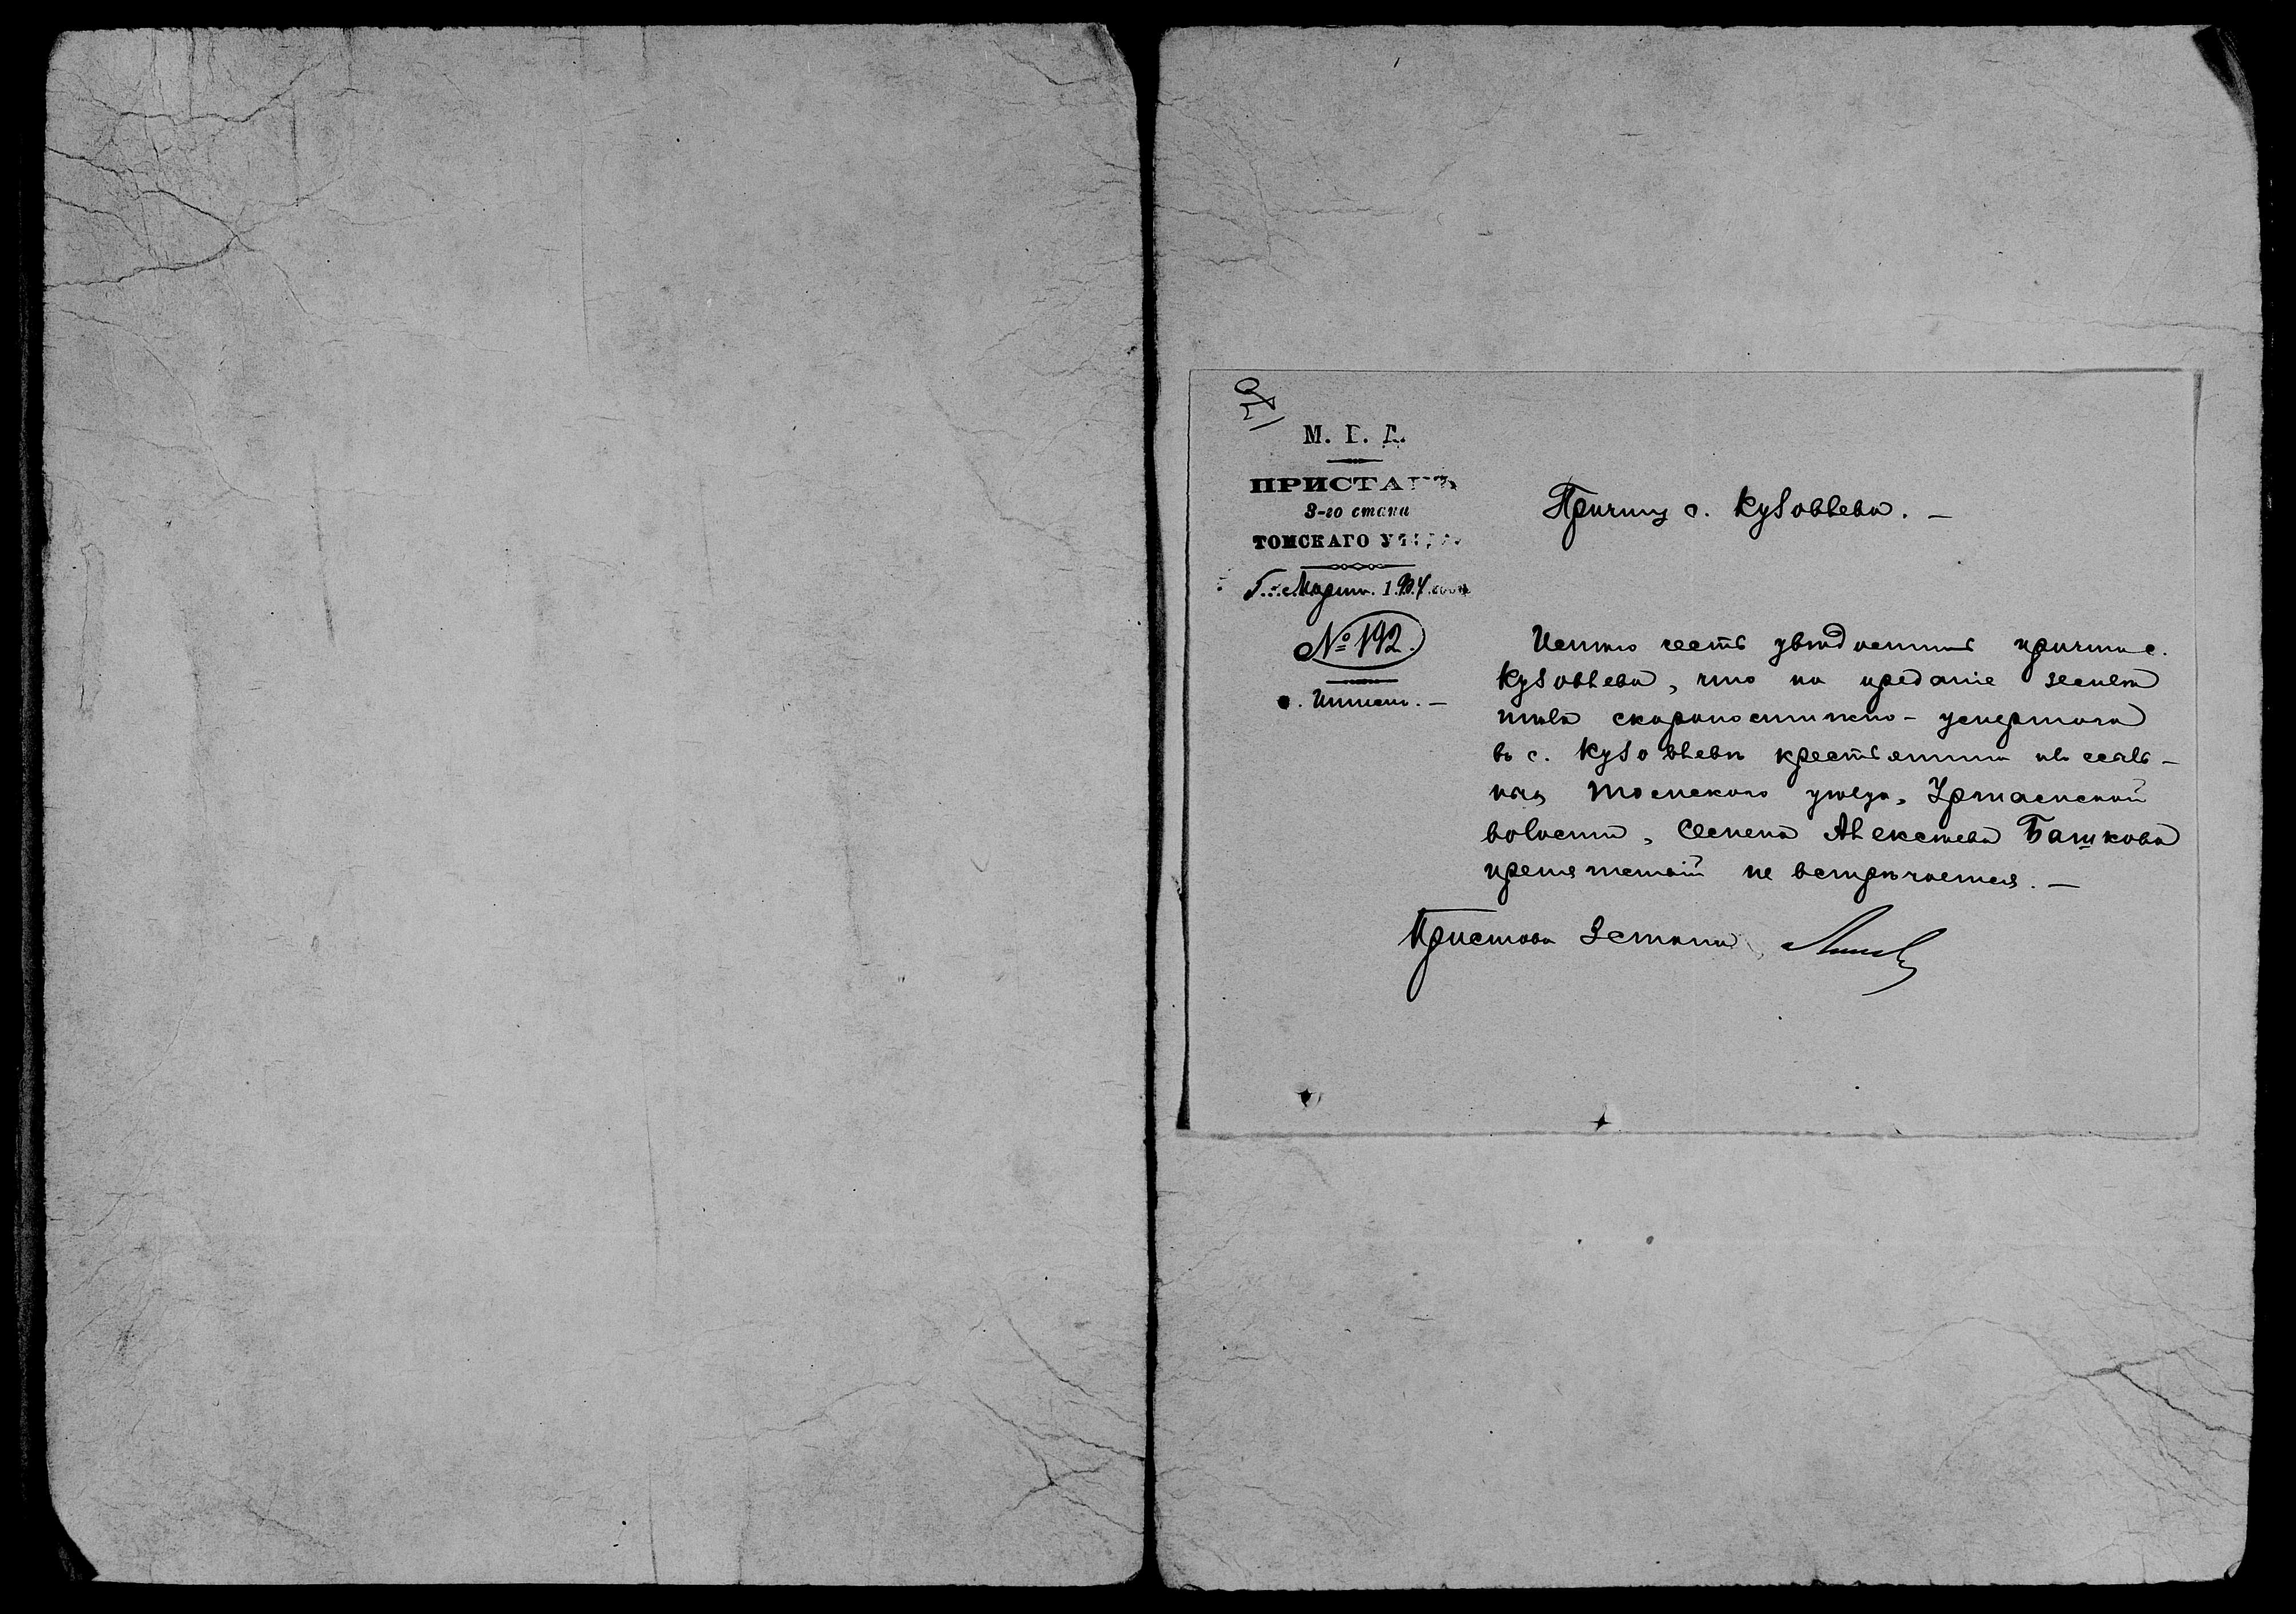 М. В. Д.
ПРИСТАВЪ
3-го стана
ТОМСКАГО УѢЗДА.
Марта 1904 года
№ 192.
с. Ишимъ. —
Причту с. Кузовлева. —
Имѣю честь увѣдомить причтъ с.
Кузовлева, что на преданіе землѣ
тѣла скоропостижно-умершаго
въ с. Кузовлевѣ крестьянина изъ ссыль-
ныхъ Томскаго уѣзда,
волости, Семена Алексѣева Башкова
препятствій не встрѣчается. —
Приставъ 3 стана